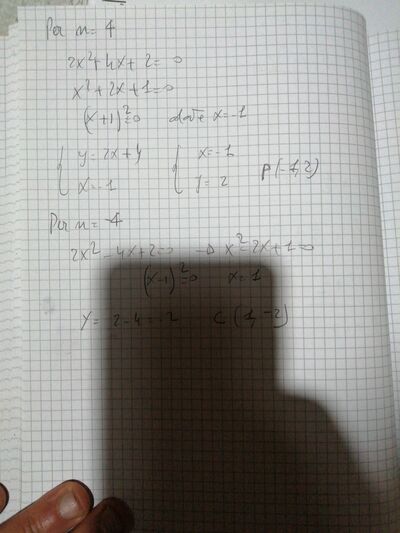 Per n = 4
2x²+4x+2=0
x²+2x+1=0
(x+1)²=0 dov'è x=-1
{ y=2x+4 { x=-1
{ x=-1 { y=2 P(-1,2)
Per n=-4
2x²-4x+2=0 → x²-2x+1=0
(x-1)²=0 x=1
y= 2-4=-2 C (1,-2)